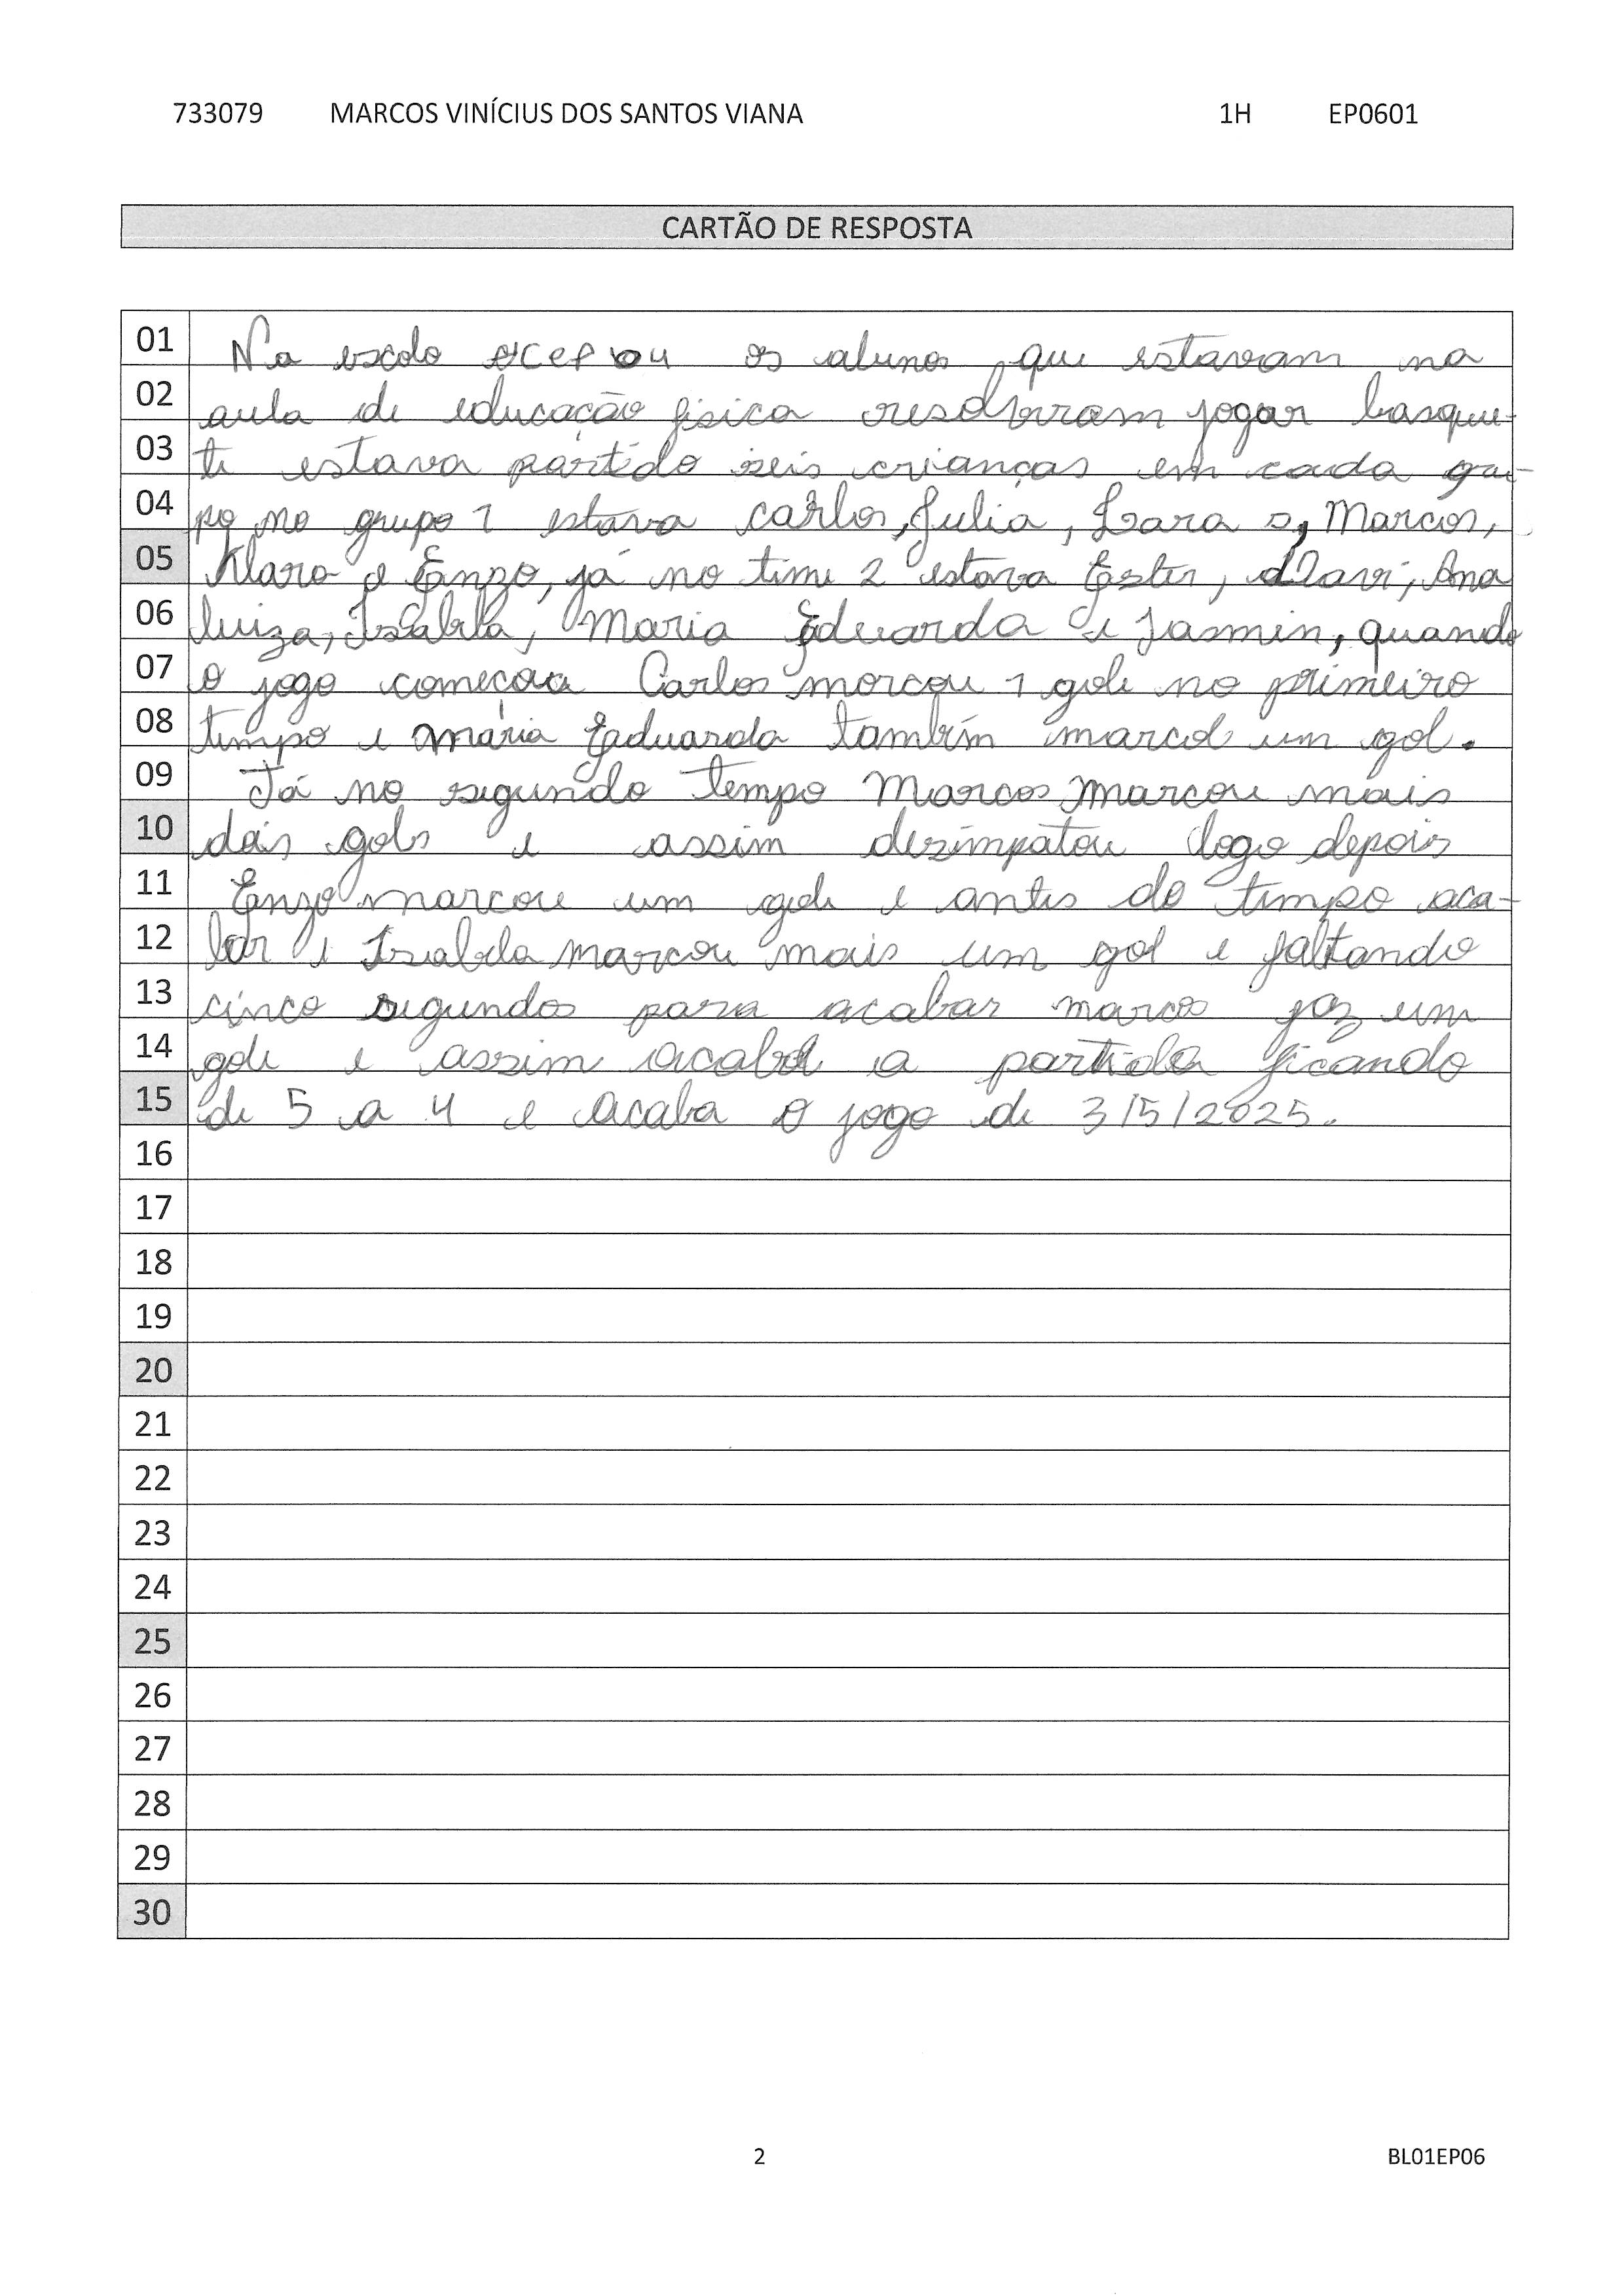 733079 MARCOS VINÍCIUS DOS SANTOS VIANA 1H EP0601
CARTÃO DE RESPOSTA
01 Na escola os alunos que estavam na
02 aula de educação fisica resolveram jogar basque-
03 te estava partido seis crianças em cada gru-
04 po no grupo 1 estava Carlos, Julia, Lara, Marcos,
05 Klara e Enzo, já no time 2 estava Ester, Davi, Ana
06 luiza, Isabela, Maria Eduarda e Jasmin, quando
07 o jogo começou Carlos morcou 1 gole no primeiro
08 tempo e maria Eduarda também marcol um gol.
09 Já no segundo tempo Marcos marcou mais
10 dois gols e assim dezimpatou logo depois
11 Enzo marcou um gole e antes do tempo aca-
12 bar e Isabela marcou mais um gol e faltando
13 cinco segundos para acabar marcos faz um
14 gole e assim acabol a partida ficando
15 de 5 a 4 e acaba o jogo de 3/5/2025.
16
17
18
19
20
21
22
23
24
25
26
27
28
29
30
2 BL01EP06